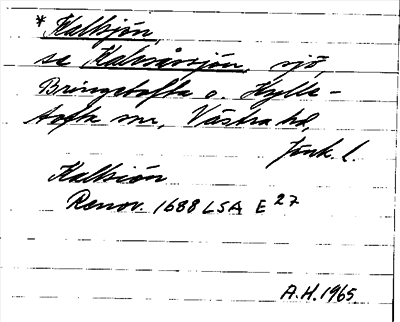 * Kalksjön,
se Kalvsåssjön, sjö,
Bringetofta o. Hylle-
tofta snr, Västra hd,
Jönk. l.
Kalksiön
Renov. 1688 LSA E 27
A.H. 1965